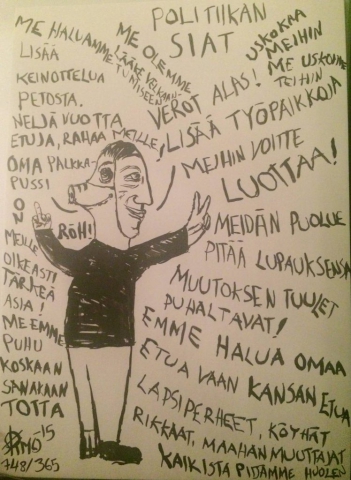 POLITIIKAN
SIAT
ME HALUAMME
LISÄÄ
KEINOTTELUA
PETOSTA.
NELJÄ VUOTTA
ETUJA, RAHAA MEILLE!
OMA PALKKA-
PUSSI
ON
MEILLE
OIKEASTI
TÄRKEÄ
ASIA!
ME EMME
PUHU
KOSKAAN
SANAKAAN
TOTTA
RÖH!
ME OLEMME
LÄÄKE VELKAAN-
TUMISEEN!
USKOKAA
MEIHIN
ME USKOMME
TEIHIN
VEROT ALAS!
LISÄÄ TYÖPAIKKOJA
MEIHIN VOITTE
LUOTTAA!
MEIDÄN PUOLUE
PITÄÄ LUPAUKSENSA
MUUTOKSEN TUULET
PUHALTAVAT!
EMME HALUA OMAA
ETUA VAAN KANSAN ETUA
LAPSIPERHEET, KÖYHÄT
RIKKAAT, MAAHANMUUTTAJAT
KAIKISTA PIDÄMME HUOLEN
-15
748/365